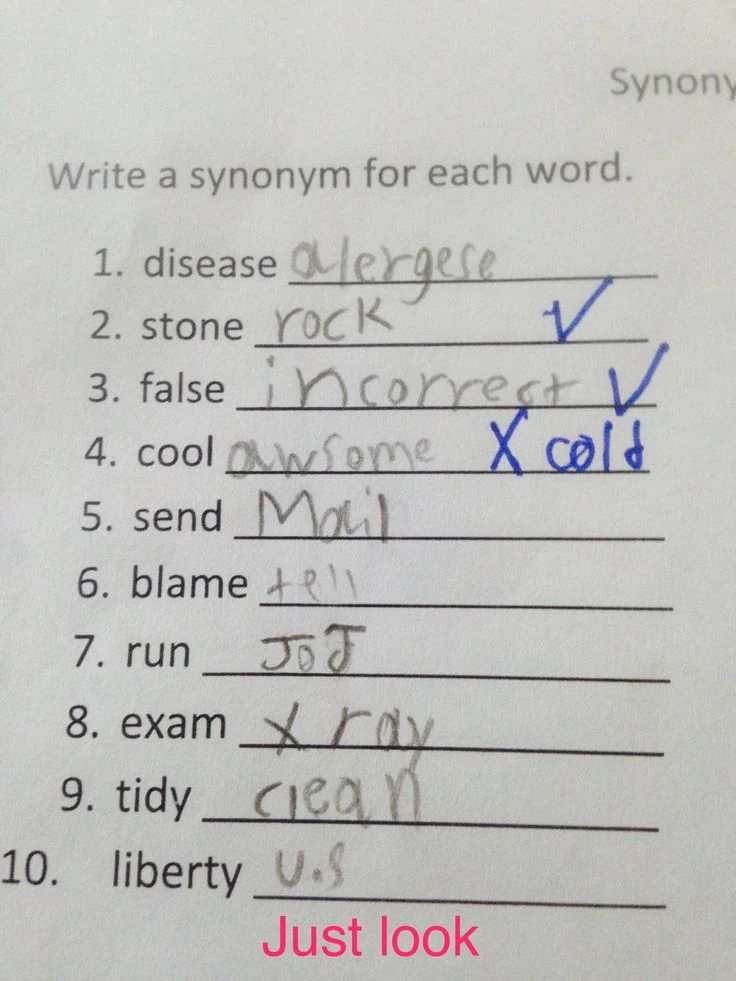 Synony
Write a synonym for each word.
1. disease alergese
2. stone rock ✓
3. false incorrect ✓
4. cool awsome X cold
5. send Mail
6. blame tell
7. run JoJ
8. exam x ray
9. tidy clean
10. liberty U.S
Just look